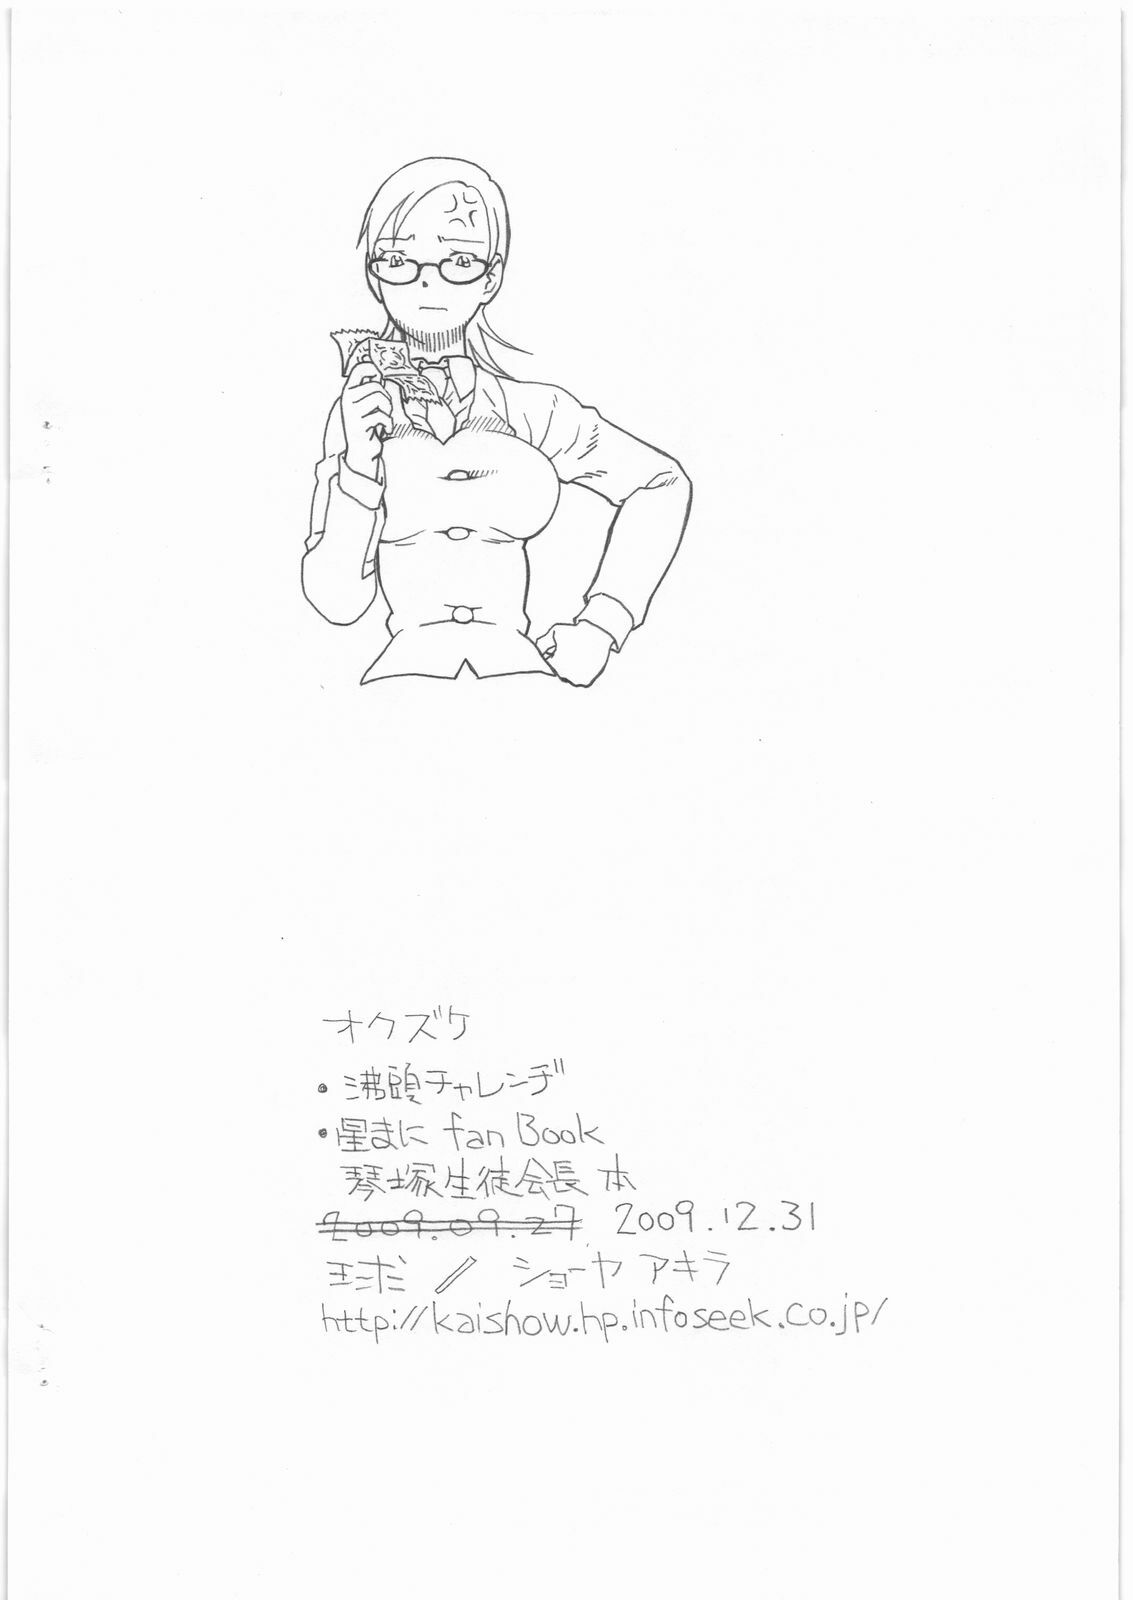 オクズケ
・沸頭チャレンヂ
・星まに fan Book
琴塚生徒会長 本
2009.09.27 2009.12.31
王ニボミ / ショーヤ アキラ
http://kaishow.hp.infoseek.co.jp/